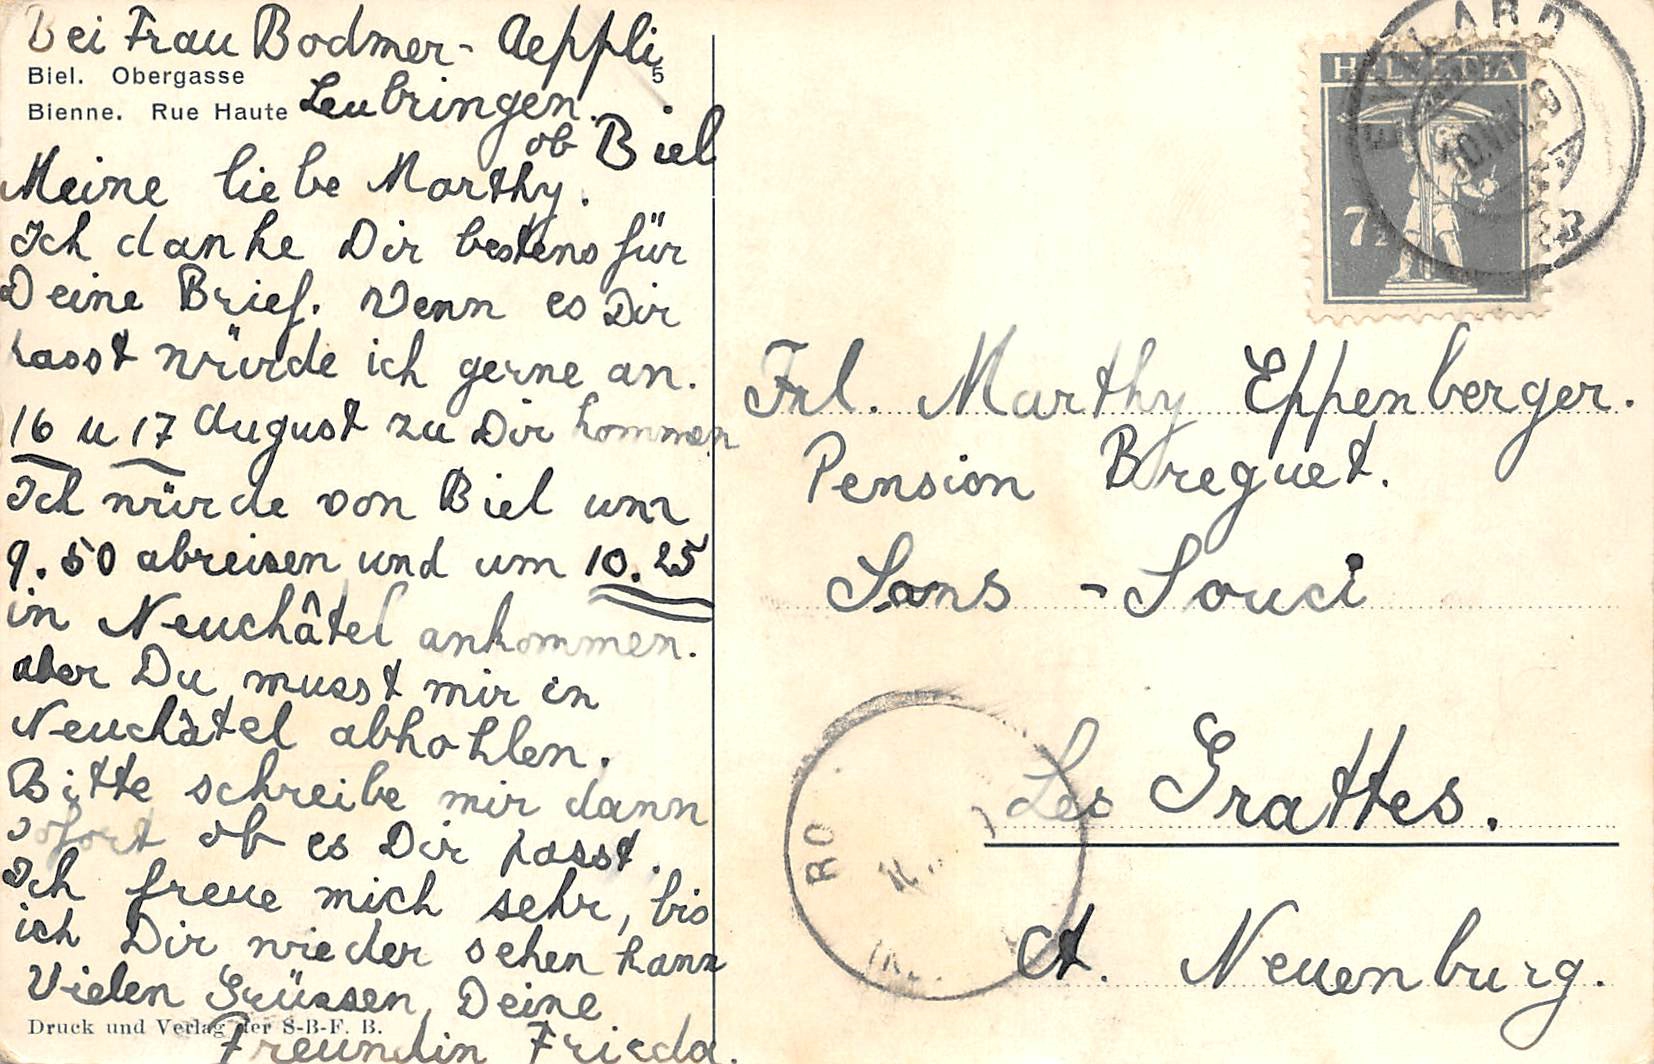 Bei Frau Bodmer-Aeppli
Biel. Obergasse 5
Bienne. Rue Haute
Leubringen.
ob Biel
Meine liebe Marthy.
Ich danke Dir bestens für
Deine Brief. Wenn es Dir
passt würde ich gerne an.
16 u 17 August zu Dir kommen
Ich würde von Biel um
9.50 abreisen und um 10.25
in Neuchâtel ankommen.
aber Du musst mir in
Neuchâtel abhohlen.
Bitte schreibe mir dann
sofort ob es Dir passt.
Ich freue mich sehr, bis
ich Dir wieder sehen kann
Vielen Grüssen, Deine
Freundin Frieda.
Druck und Verlag der S-B-F. B.
HELVETIA
7½
Frl. Marthy Eppenberger.
Pension Breguet.
Sans-Souci
Les Grattes.
Ct. Neuenburg.
RO